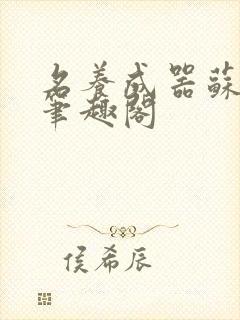 名養成器蘇
筆趣閣
侯希辰